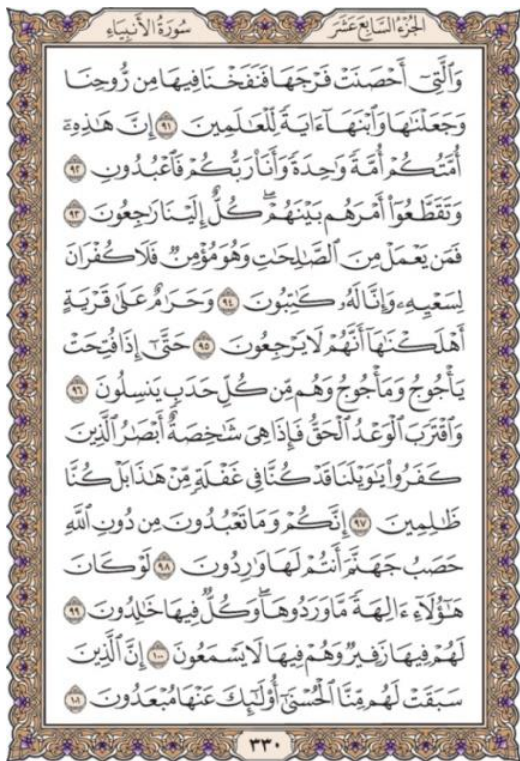 الجزء السابع عشر
سورة الأنبياء
وَالَّتِىٓ أَحْصَنَتْ فَرْجَهَا فَنَفَخْنَا فِيهَا مِن رُّوحِنَا
وَجَعَلْنَٰهَا وَٱبْنَهَآ ءَايَةً لِّلْعَٰلَمِينَ ٩١ إِنَّ هَٰذِهِۦٓ
أُمَّتُكُمْ أُمَّةً وَٰحِدَةً وَأَنَا۠ رَبُّكُمْ فَٱعْبُدُونِ ٩٢
وَتَقَطَّعُوٓا۟ أَمْرَهُم بَيْنَهُمْ ۖ كُلٌّ إِلَيْنَا رَٰجِعُونَ ٩٣
فَمَن يَعْمَلْ مِنَ ٱلصَّٰلِحَٰتِ وَهُوَ مُؤْمِنٌ فَلَا كُفْرَانَ
لِسَعْيِهِۦ وَإِنَّا لَهُۥ كَٰتِبُونَ ٩٤ وَحَرَٰمٌ عَلَىٰ قَرْيَةٍ
أَهْلَكْنَٰهَآ أَنَّهُمْ لَا يَرْجِعُونَ ٩٥ حَتَّىٰٓ إِذَا فُتِحَتْ
يَأْجُوجُ وَمَأْجُوجُ وَهُم مِّن كُلِّ حَدَبٍ يَنسِلُونَ ٩٦
وَٱقْتَرَبَ ٱلْوَعْدُ ٱلْحَقُّ فَإِذَا هِىَ شَٰخِصَةٌ أَبْصَٰرُ ٱلَّذِينَ
كَفَرُوا۟ يَٰوَيْلَنَا قَدْ كُنَّا فِى غَفْلَةٍ مِّنْ هَٰذَا بَلْ كُنَّا
ظَٰلِمِينَ ٩٧ إِنَّكُمْ وَمَا تَعْبُدُونَ مِن دُونِ ٱللَّهِ
حَصَبُ جَهَنَّمَ أَنتُمْ لَهَا وَٰرِدُونَ ٩٨ لَوْ كَانَ
هَٰٓؤُلَآءِ ءَالِهَةً مَّا وَرَدُوهَا ۖ وَكُلٌّ فِيهَا خَٰلِدُونَ ٩٩
لَهُمْ فِيهَا زَفِيرٌ وَهُمْ فِيهَا لَا يَسْمَعُونَ ١٠٠ إِنَّ ٱلَّذِينَ
سَبَقَتْ لَهُم مِّنَّا ٱلْحُسْنَىٰٓ أُو۟لَٰٓئِكَ عَنْهَا مُبْعَدُونَ ١٠١
٣٣٠